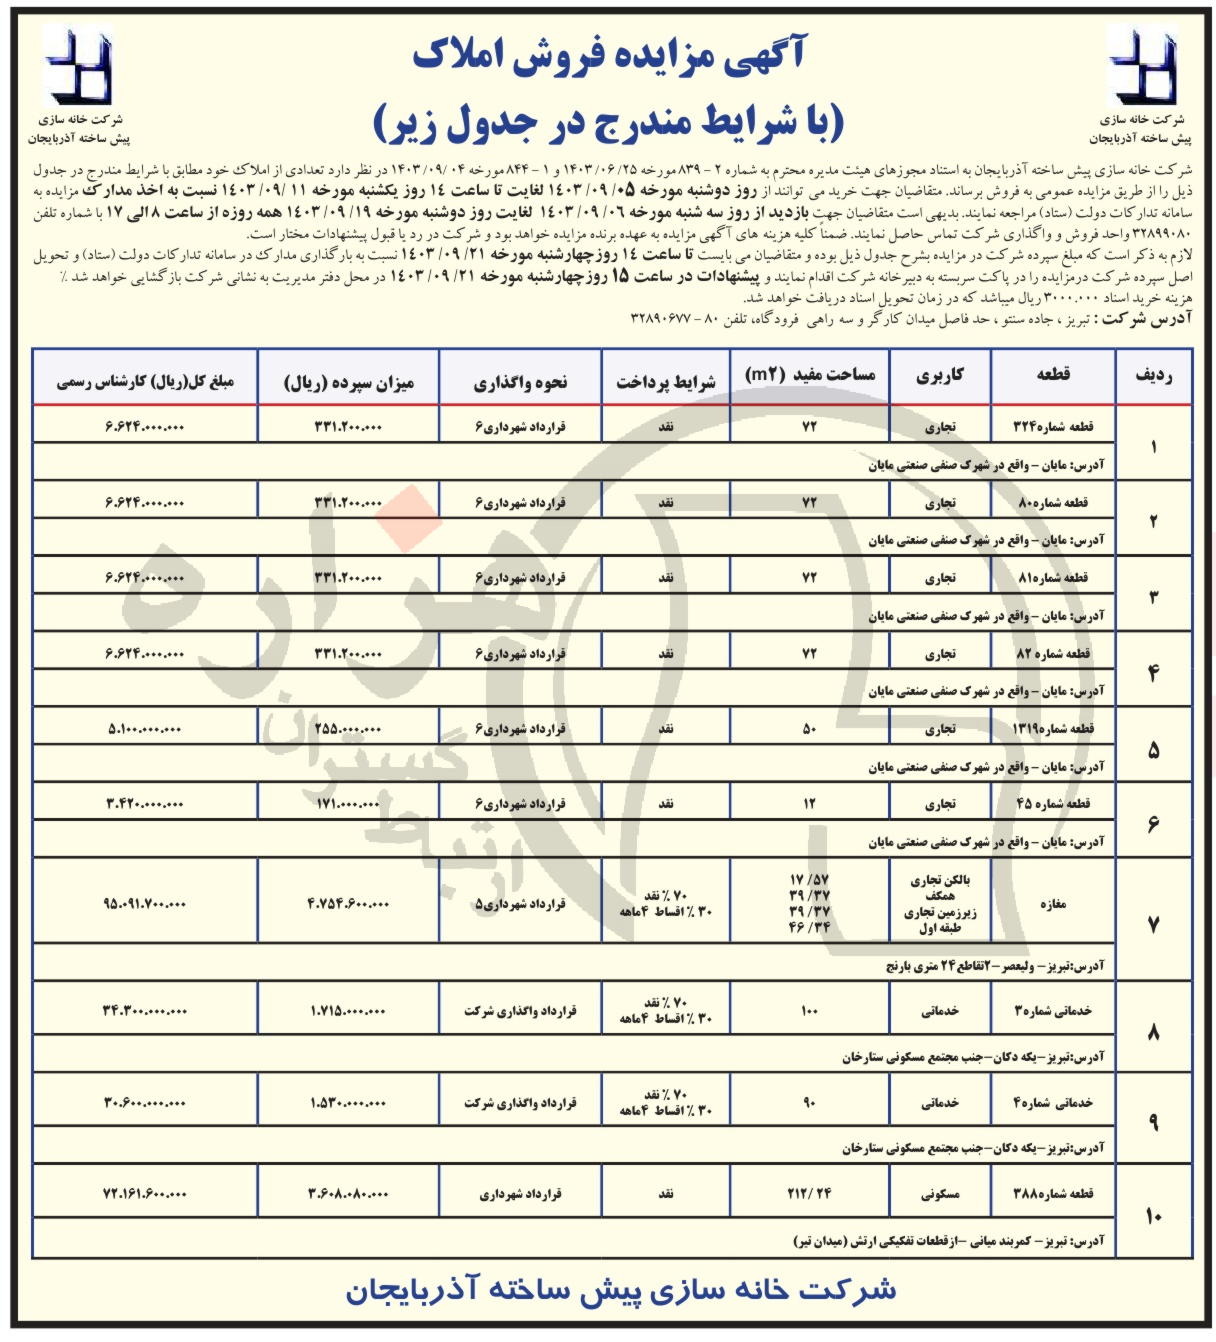 آگهی مزایده فروش املاک
(با شرایط مندرج در جدول زیر)
شرکت خانه سازی
پیش ساخته آذربایجان
شرکت خانه سازی
پیش ساخته آذربایجان
شرکت خانه سازی پیش ساخته آذربایجان به استناد مجوزهای هیئت مدیره محترم به شماره ۲ - ۸۳۹مورخه ۱۴۰۳/۰۶/۲۵ و ۱ - ۸۴۴مورخه ۱۴۰۳/۰۹/۰۴ در نظر دارد تعدادی از املاک خود مطابق با شرایط مندرج در جدول
ذیل را از طریق مزایده عمومی به فروش برساند. متقاضیان جهت خرید می توانند از روز دوشنبه مورخه ۱۴۰۳/۰۹/۰۵ لغایت تا ساعت ۱۴ روز یکشنبه مورخه ۱۴۰۳/۰۹/۱۱ نسبت به اخذ مدارک مزایده به
سامانه تدارکات دولت (ستاد) مراجعه نمایند. بدیهی است متقاضیان جهت بازدید از روز سه شنبه مورخه ۱۴۰۳/۰۹/۰۶ لغایت روز دوشنبه مورخه ۱۴۰۳/۰۹/۱۹ همه روزه از ساعت ۸ الی ۱۷ با شماره تلفن
۳۲۸۹۹۰۸۰ واحد فروش و واگذاری شرکت تماس حاصل نمایند. ضمناً کلیه هزینه های آگهی مزایده به عهده برنده مزایده خواهد بود و شرکت در رد یا قبول پیشنهادات مختار است.
لازم به ذکر است که مبلغ سپرده شرکت در مزایده بشرح جدول ذیل بوده و متقاضیان می بایست تا ساعت ۱۴ روزچهارشنبه مورخه ۱۴۰۳/۰۹/۲۱ نسبت به بارگذاری مدارک در سامانه تدارکات دولت (ستاد) و تحویل
اصل سپرده شرکت درمزایده را در پاکت سربسته به دبیرخانه شرکت اقدام نمایند و پیشنهادات در ساعت ۱۵ روزچهارشنبه مورخه ۱۴۰۳/۰۹/۲۱ در محل دفتر مدیریت به نشانی شرکت بازگشایی خواهد شد ٪
هزینه خرید اسناد ۳۰۰۰.۰۰۰ ریال میباشد که در زمان تحویل اسناد دریافت خواهد شد.
آدرس شرکت : تبریز ، جاده سنتو ، حد فاصل میدان کارگر و سه راهی فرودگاه، تلفن ۸۰ - ۳۲۸۹۰۶۷۷
ردیف قطعه کاربری مساحت مفید (m۲) شرایط پرداخت نحوه واگذاری میزان سپرده (ریال) مبلغ کل(ریال) کارشناس رسمی
۱ قطعه شماره۳۲۴ تجاری ۷۲ نقد قرارداد شهرداری۶ ۳۳۱.۲۰۰.۰۰۰ ۶.۶۲۴.۰۰۰.۰۰۰
آدرس: مایان - واقع در شهرک صنفی صنعتی مایان
۲ قطعه شماره۸۰ تجاری ۷۲ نقد قرارداد شهرداری۶ ۳۳۱.۲۰۰.۰۰۰ ۶.۶۲۴.۰۰۰.۰۰۰
آدرس: مایان - واقع در شهرک صنفی صنعتی مایان
۳ قطعه شماره۸۱ تجاری ۷۲ نقد قرارداد شهرداری۶ ۳۳۱.۲۰۰.۰۰۰ ۶.۶۲۴.۰۰۰.۰۰۰
آدرس: مایان - واقع در شهرک صنفی صنعتی مایان
۴ قطعه شماره ۸۲ تجاری ۷۲ نقد قرارداد شهرداری۶ ۳۳۱.۲۰۰.۰۰۰ ۶.۶۲۴.۰۰۰.۰۰۰
آدرس: مایان - واقع در شهرک صنفی صنعتی مایان
۵ قطعه شماره۱۳۱۹ تجاری ۵۰ نقد قرارداد شهرداری۶ ۲۵۵.۰۰۰.۰۰۰ ۵.۱۰۰.۰۰۰.۰۰۰
آدرس: مایان - واقع در شهرک صنفی صنعتی مایان
۶ قطعه شماره ۴۵ تجاری ۱۲ نقد قرارداد شهرداری۶ ۱۷۱.۰۰۰.۰۰۰ ۳.۴۲۰.۰۰۰.۰۰۰
آدرس: مایان - واقع در شهرک صنفی صنعتی مایان
۷ مغازه قرارداد شهرداری۵ ۴.۷۵۴.۶۰۰.۰۰۰ ۹۵.۰۹۱.۷۰۰.۰۰۰
بالکن تجاری ۱۷/۵۷
همکف ۳۹/۳۷ ۷۰ ٪ نقد
زیرزمین تجاری ۳۹/۳۷ ۳۰ ٪ اقساط ۴ماهه
طبقه اول ۴۶/۳۴
آدرس:تبریز- ولیعصر-۲تقاطع۲۴ متری بارنج
۸ خدماتی شماره۳ خدماتی ۱۰۰ ۷۰ ٪ نقد ۳۰ ٪ اقساط ۴ماهه قرارداد واگذاری شرکت ۱.۷۱۵.۰۰۰.۰۰۰ ۳۴.۳۰۰.۰۰۰.۰۰۰
آدرس:تبریز-یکه دکان-جنب مجتمع مسکونی ستارخان
۹ خدماتی شماره۴ خدماتی ۹۰ ۷۰ ٪ نقد ۳۰ ٪ اقساط ۴ماهه قرارداد واگذاری شرکت ۱.۵۳۰.۰۰۰.۰۰۰ ۳۰.۶۰۰.۰۰۰.۰۰۰
آدرس:تبریز-یکه دکان-جنب مجتمع مسکونی ستارخان
۱۰ قطعه شماره۳۸۸ مسکونی ۲۱۲/۲۴ نقد قرارداد شهرداری ۳.۶۰۸.۰۸۰.۰۰۰ ۷۲.۱۶۱.۶۰۰.۰۰۰
آدرس: تبریز- کمربند میانی -ازقطعات تفکیکی ارتش (میدان تیر)
شرکت خانه سازی پیش ساخته آذربایجان
هزاره
گستران
ارتباط